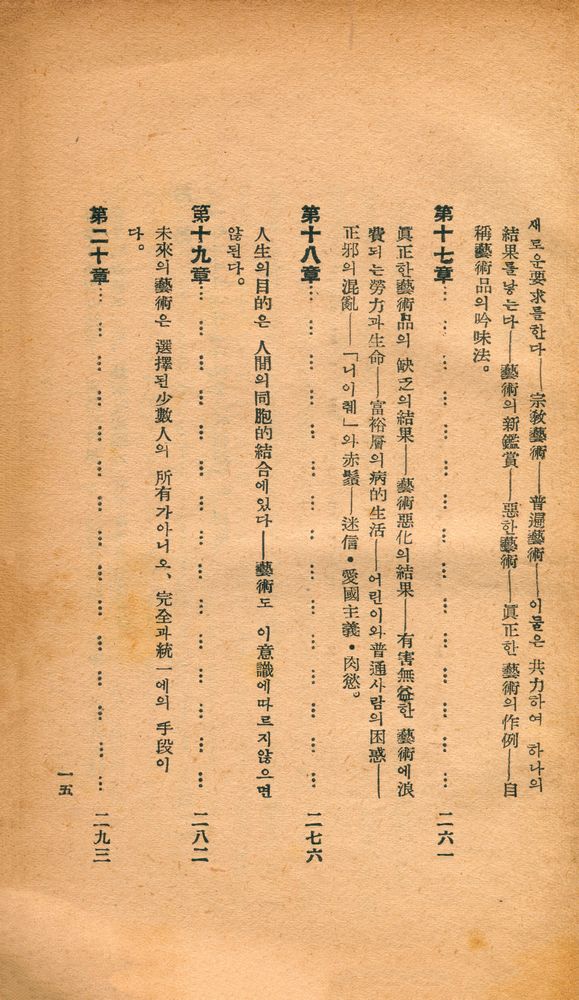 새로운要求를한다——宗敎藝術——普遍藝術——이물은 共力하여 하나의
結果를낳는다——藝術의新鑑賞——惡한藝術——眞正한 藝術의作例——自
稱藝術品의吟味法。
第十七章…………………………二六一
眞正한藝術品의 缺乏의結果——藝術惡化의結果——有害無益한 藝術에浪
費되는勞力과生命——富裕層의病的生活——어린이와普通사람의困惑——
正邪의混亂——「니이췌」와赤鬚——迷信・愛國主義・肉慾。
第十八章…………………………二七六
人生의目的은 人間의同胞的結合에있다——藝術도 이意識에따르지않으면
않된다。
第十九章…………………………二八二
未來의藝術은 選擇된少數人의 所有가아니오、完全과統一에의 手段이
다。
第二十章…………………………二九三
一五